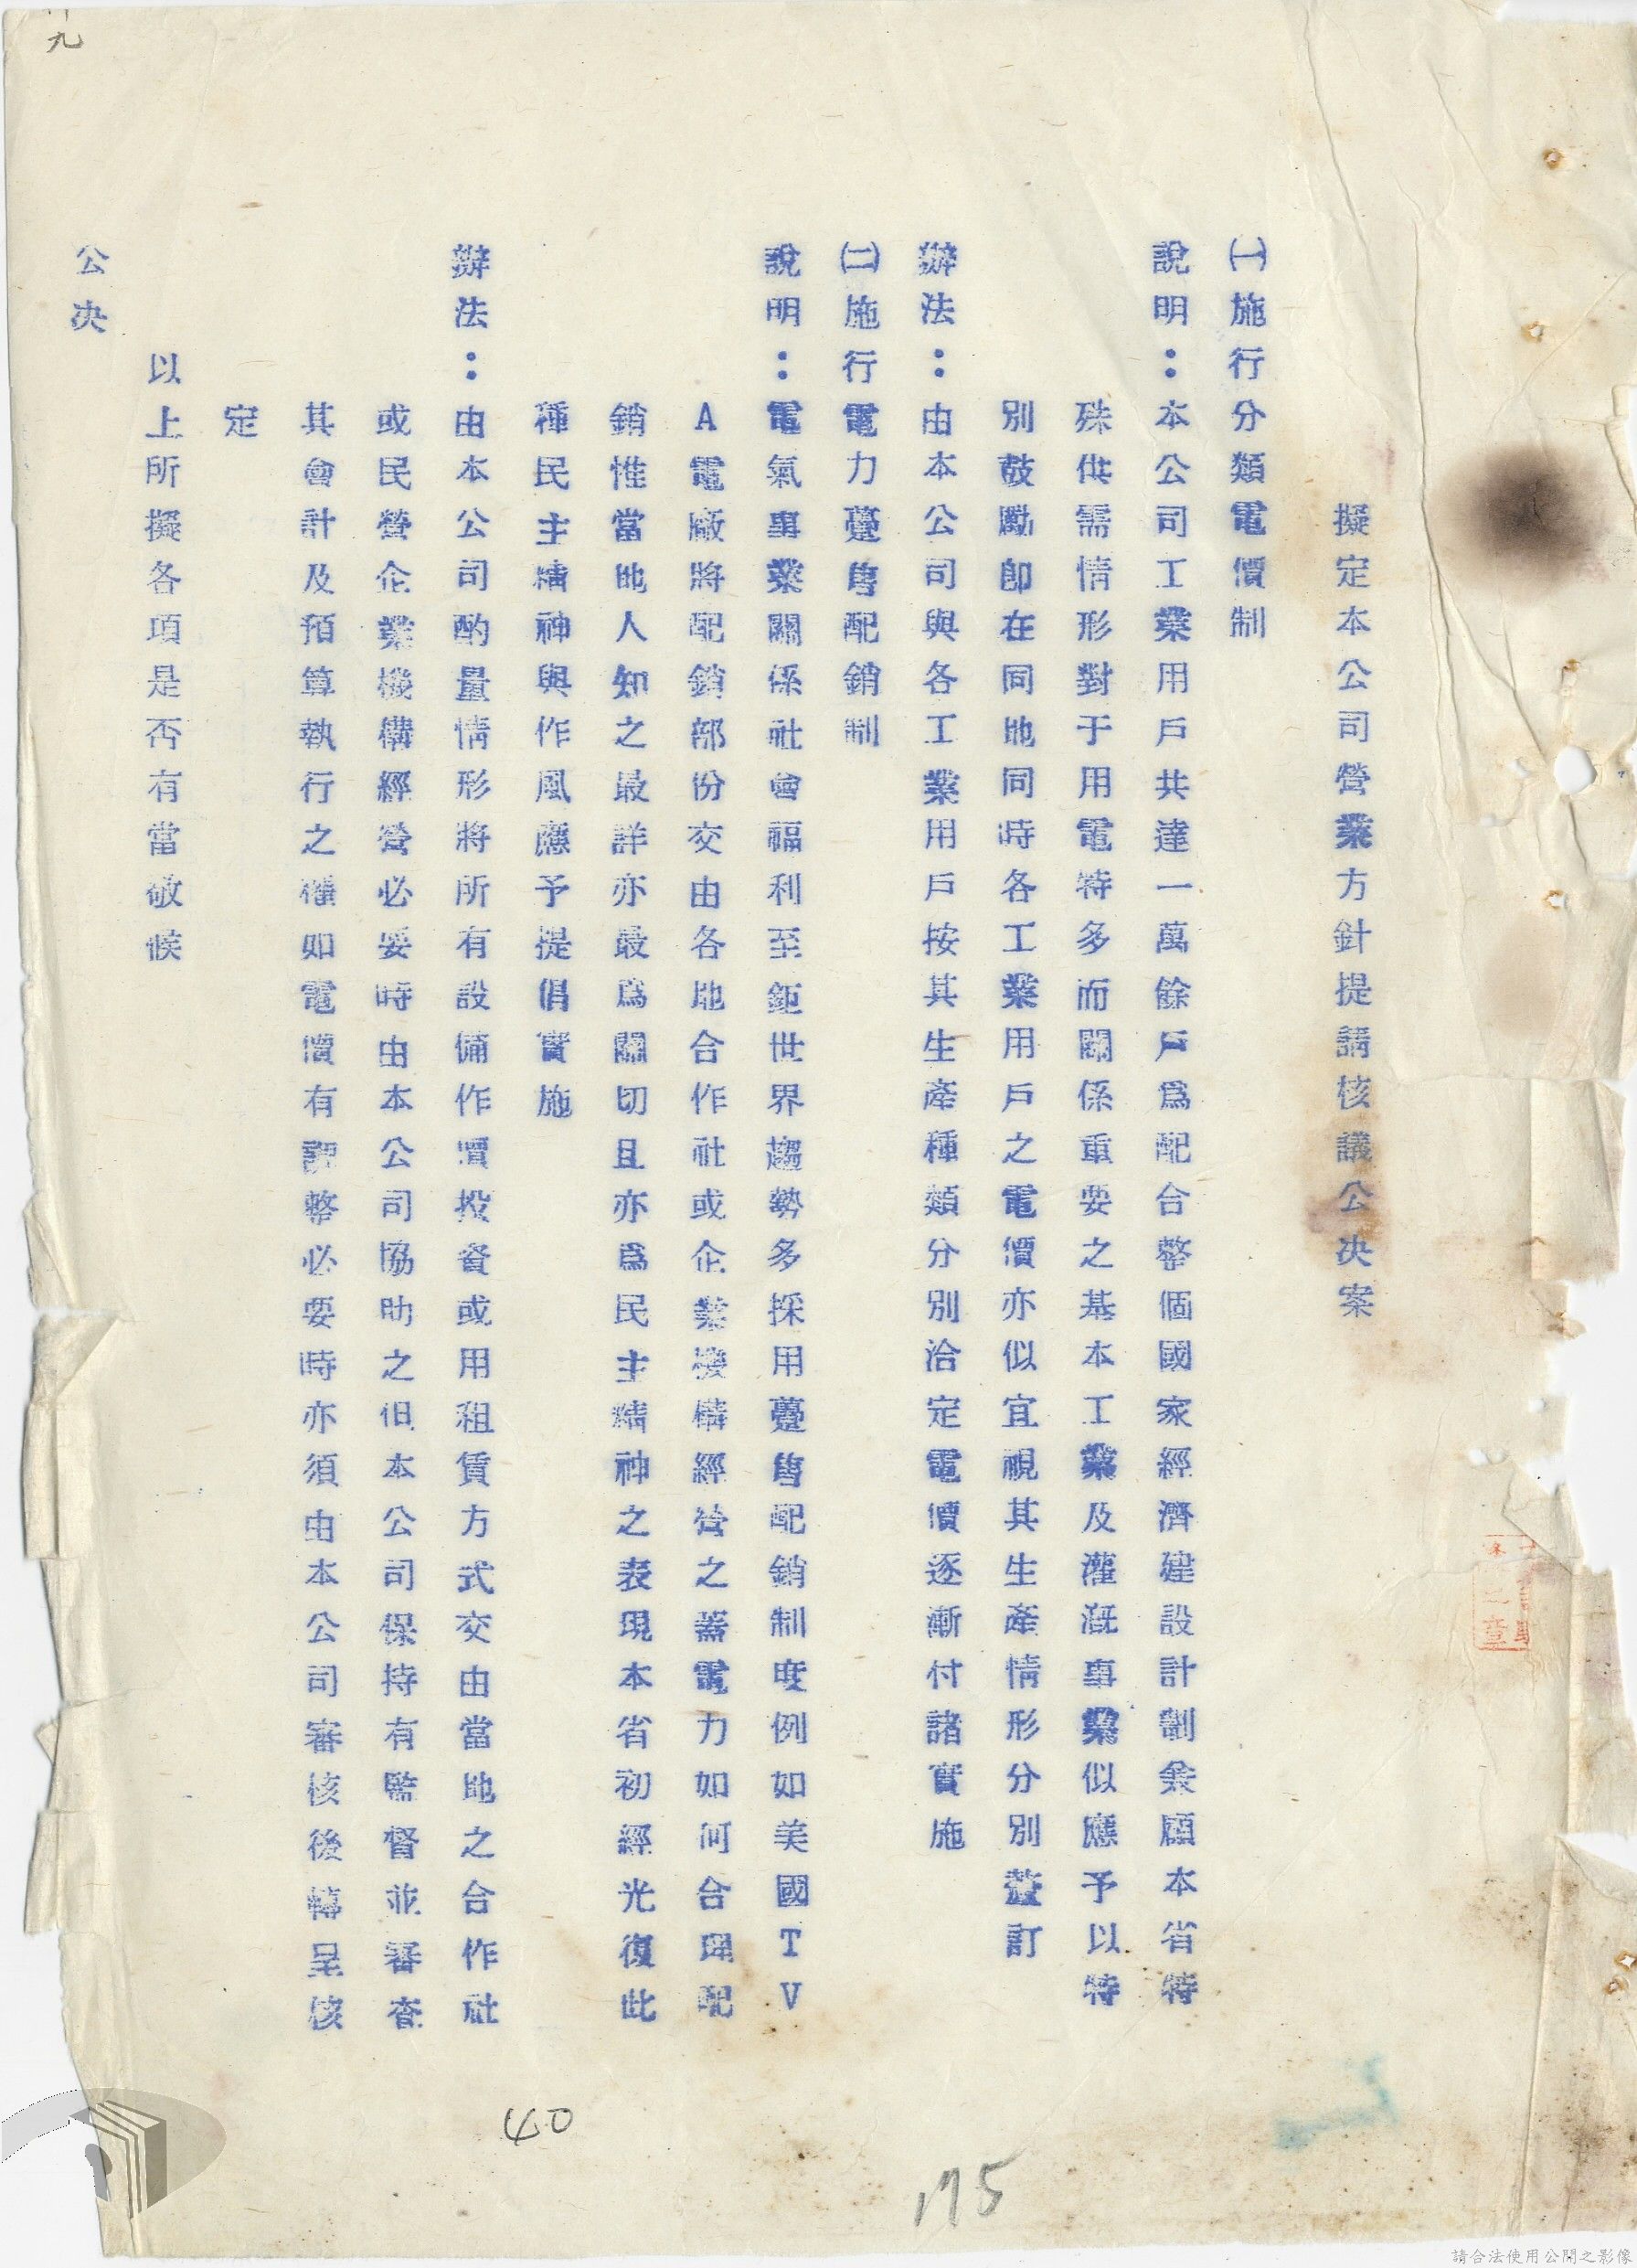 擬定本公司營業方針提請核議公決案
㈠施行分類電價制
說明：本公司工業用戶共達一萬餘戶為配合整個國家經濟建設計劃兼顧本省特
殊供需情形對于用電特多而關係重要之基本工業及灌溉事業似應予以特
別鼓勵即在同地同時各工業用戶之電價亦似宜視其生產情形分別釐訂
辦法：由本公司與各工業用戶按其生產種類分別洽定電價逐漸付諸實施
㈡施行電力躉售配銷制
說明：電氣事業關係社會福利至鉅世界趨勢多採用躉售配銷制度例如美國TV
A電廠將配銷部份交由各地合作社或企業機構經營之蓋電力如何合理配
銷惟當地人知之最詳亦最為關切且亦為民主精神之表現本省初經光復此
種民主精神與作風應予提倡實施
辦法：由本公司酌量情形將所有設備作價投資或用租賃方式交由當地之合作社
或民營企業機構經營必要時由本公司協助之但本公司保持有監督並審查
其會計及預算執行之權如電價有調整必要時亦須由本公司審核後轉呈核
定
以上所擬各項是否有當敬候
公決
九
40
175
請合法使用公開之影像